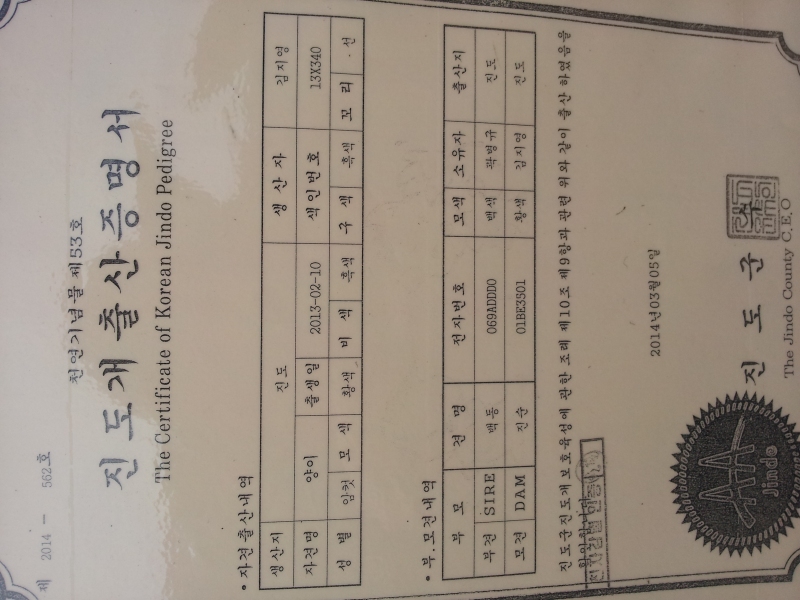 제 2014 - 562호
천연기념물 제53호
진도개출산증명서
The Certificate of Korean Jindo Pedigree
• 자견출산내역
생산지 진도 생산자 김지영
자견명 양이 출생일 2013-02-10 색인번호 13X340
성별 암컷 모색 황색 비색 흑색 구색 흑색 꼬리 선
• 부.모견내역
부모 견명 전자번호 모색 소유자 출산지
부견 SIRE 백동 069ADDD0 백색 곽병규 진도
모견 DAM 진순 01BE3S01 황색 김지영 진도
진도군진도개보호육성에 관한 조례 제10조 제9항과 관련 위와 같이 출산 하였음을
2014년03월05일
진도군수
The Jindo County C.E.O
Jindo